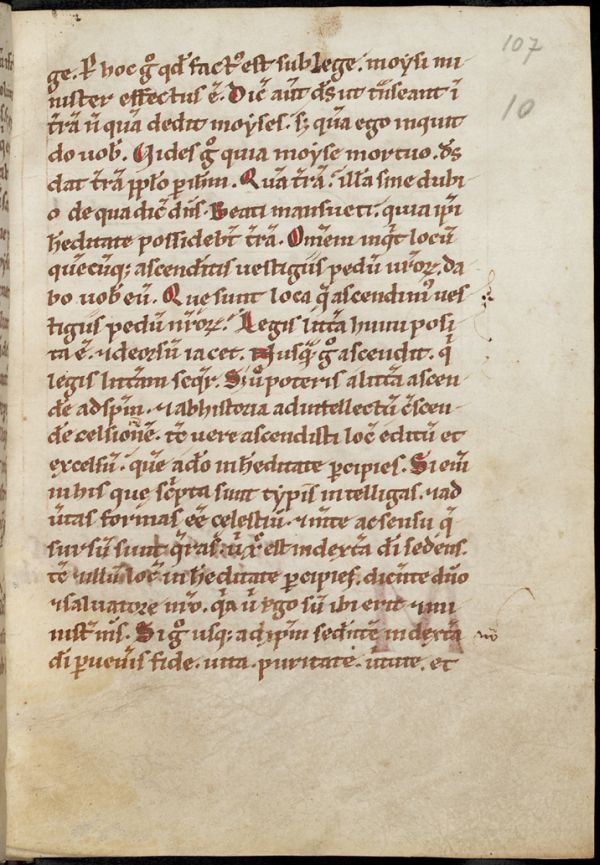 107
10
ge. P hoc gͦ qd̄ fact᷒ est sub lege. moysi mi
nister effectus ē. Dic̄ aut̄ ds̄ ut t̄nseant ī
t̄rā n̄ quā dedit moyses. sꝫ quā ego inquit
do uob̄. Uides gͦ quia moyse mortuo. ds̄
dat t̄rā pplo p ih̄m. Quā t̄rā. illā sine dubi
o de qua dic̄ dn̄s. Beati mansueti. quia ipsi
h̄editate possidebt̄ t̄rā. Om̄em inqt locū
quēcūqꝫ ascenditis uestigiis pedū ur̄oꝝ. da
bo uob̄ eū. Que sunt loca q̄ ascendim᷒ ues
tigiis pedū nr̄oꝝ. Legis litt̄a humi posi
ta ē. ⁊ deorsū iacet. Nusqͣ gͦ ascendit. qͥ
legis litt̄am seqr̄. Si u͛o poteris a litt̄a ascen
de᷑ ad sp̄m. ⁊ ab historia ad intellectū c̄scen
de᷑ celsionē. tē uere ascendisti locū editū et
excelsū. quē a do in h̄editate pcipies. Si em̄
in his que sc̄pta sunt typis intelligas. ⁊ ad
u̅tas formas ee᷑ celestiū. ⁊ mte ac sensu q̄
sursū sunt q̄ras. u̅ xp̄c est in dext̄a di sedens.
tē ⁊ illū locū in h̄editate pcipies. dicente dn̄o
⁊ saluatore nr̄o. qͣa u̅ ego sū ibi erit ⁊ mi
nist̄ m̄s. Si gͦ usqꝫ ad xp̄m sedēte in dext̄a
di pueneis fide. uita. puritate. ūtute. et